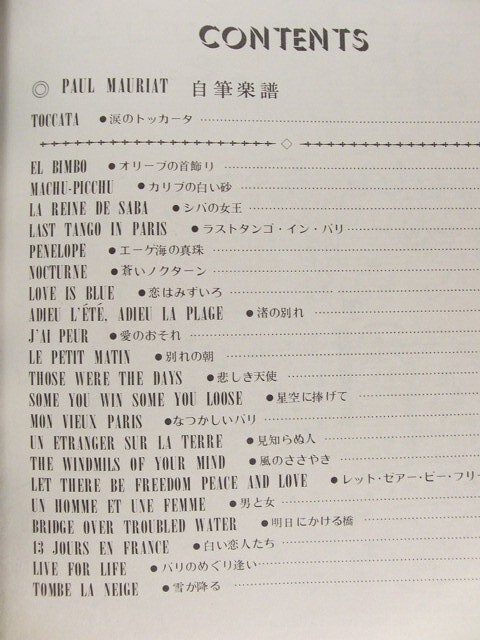 CONTENTS
◎ PAUL MAURIAT 自筆楽譜
TOCCATA ●涙のトッカータ
EL BIMBO ●オリーブの首飾り
MACHU-PICCHU ●カリブの白い砂
LA REINE DE SABA ●シバの女王
LAST TANGO IN PARIS ●ラストタンゴ・イン・パリ
PENELOPE ●エーゲ海の真珠
NOCTURNE ●蒼いノクターン
LOVE IS BLUE ●恋はみずいろ
ADIEU L'ÉTÉ, ADIEU LA PLAGE ●渚の別れ
J'AI PEUR ●愛のおそれ
LE PETIT MATIN ●別れの朝
THOSE WERE THE DAYS ●悲しき天使
SOME YOU WIN SOME YOU LOOSE ●星空に捧げて
MON VIEUX PARIS ●なつかしいパリ
UN ETRANGER SUR LA TERRE ●見知らぬ人
THE WINDMILS OF YOUR MIND ●風のささやき
LET THERE BE FREEDOM PEACE AND LOVE ●レット・ゼアー・ビー・フリー
UN HOMME ET UNE FEMME ●男と女
BRIDGE OVER TROUBLED WATER ●明日にかける橋
13 JOURS EN FRANCE ●白い恋人たち
LIVE FOR LIFE ●パリのめぐり逢い
TOMBE LA NEIGE ●雪が降る